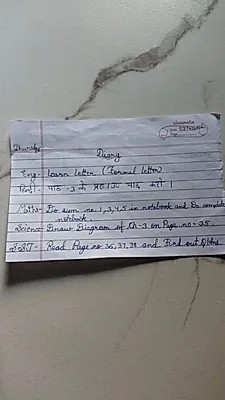 classmate
Date
Page
Diary
Eng- Learn letter (Formal letter)
हिन्दी- पाठ -3 के याद करो ।
Maths- Do sum no. 1,3,4,5 in notebook and Do complete
notebook
Science- Draw Diagram of Ch-3 on Page no- 35.
S.ST- Read Page no 36,37,38 and Find out Q/Ans